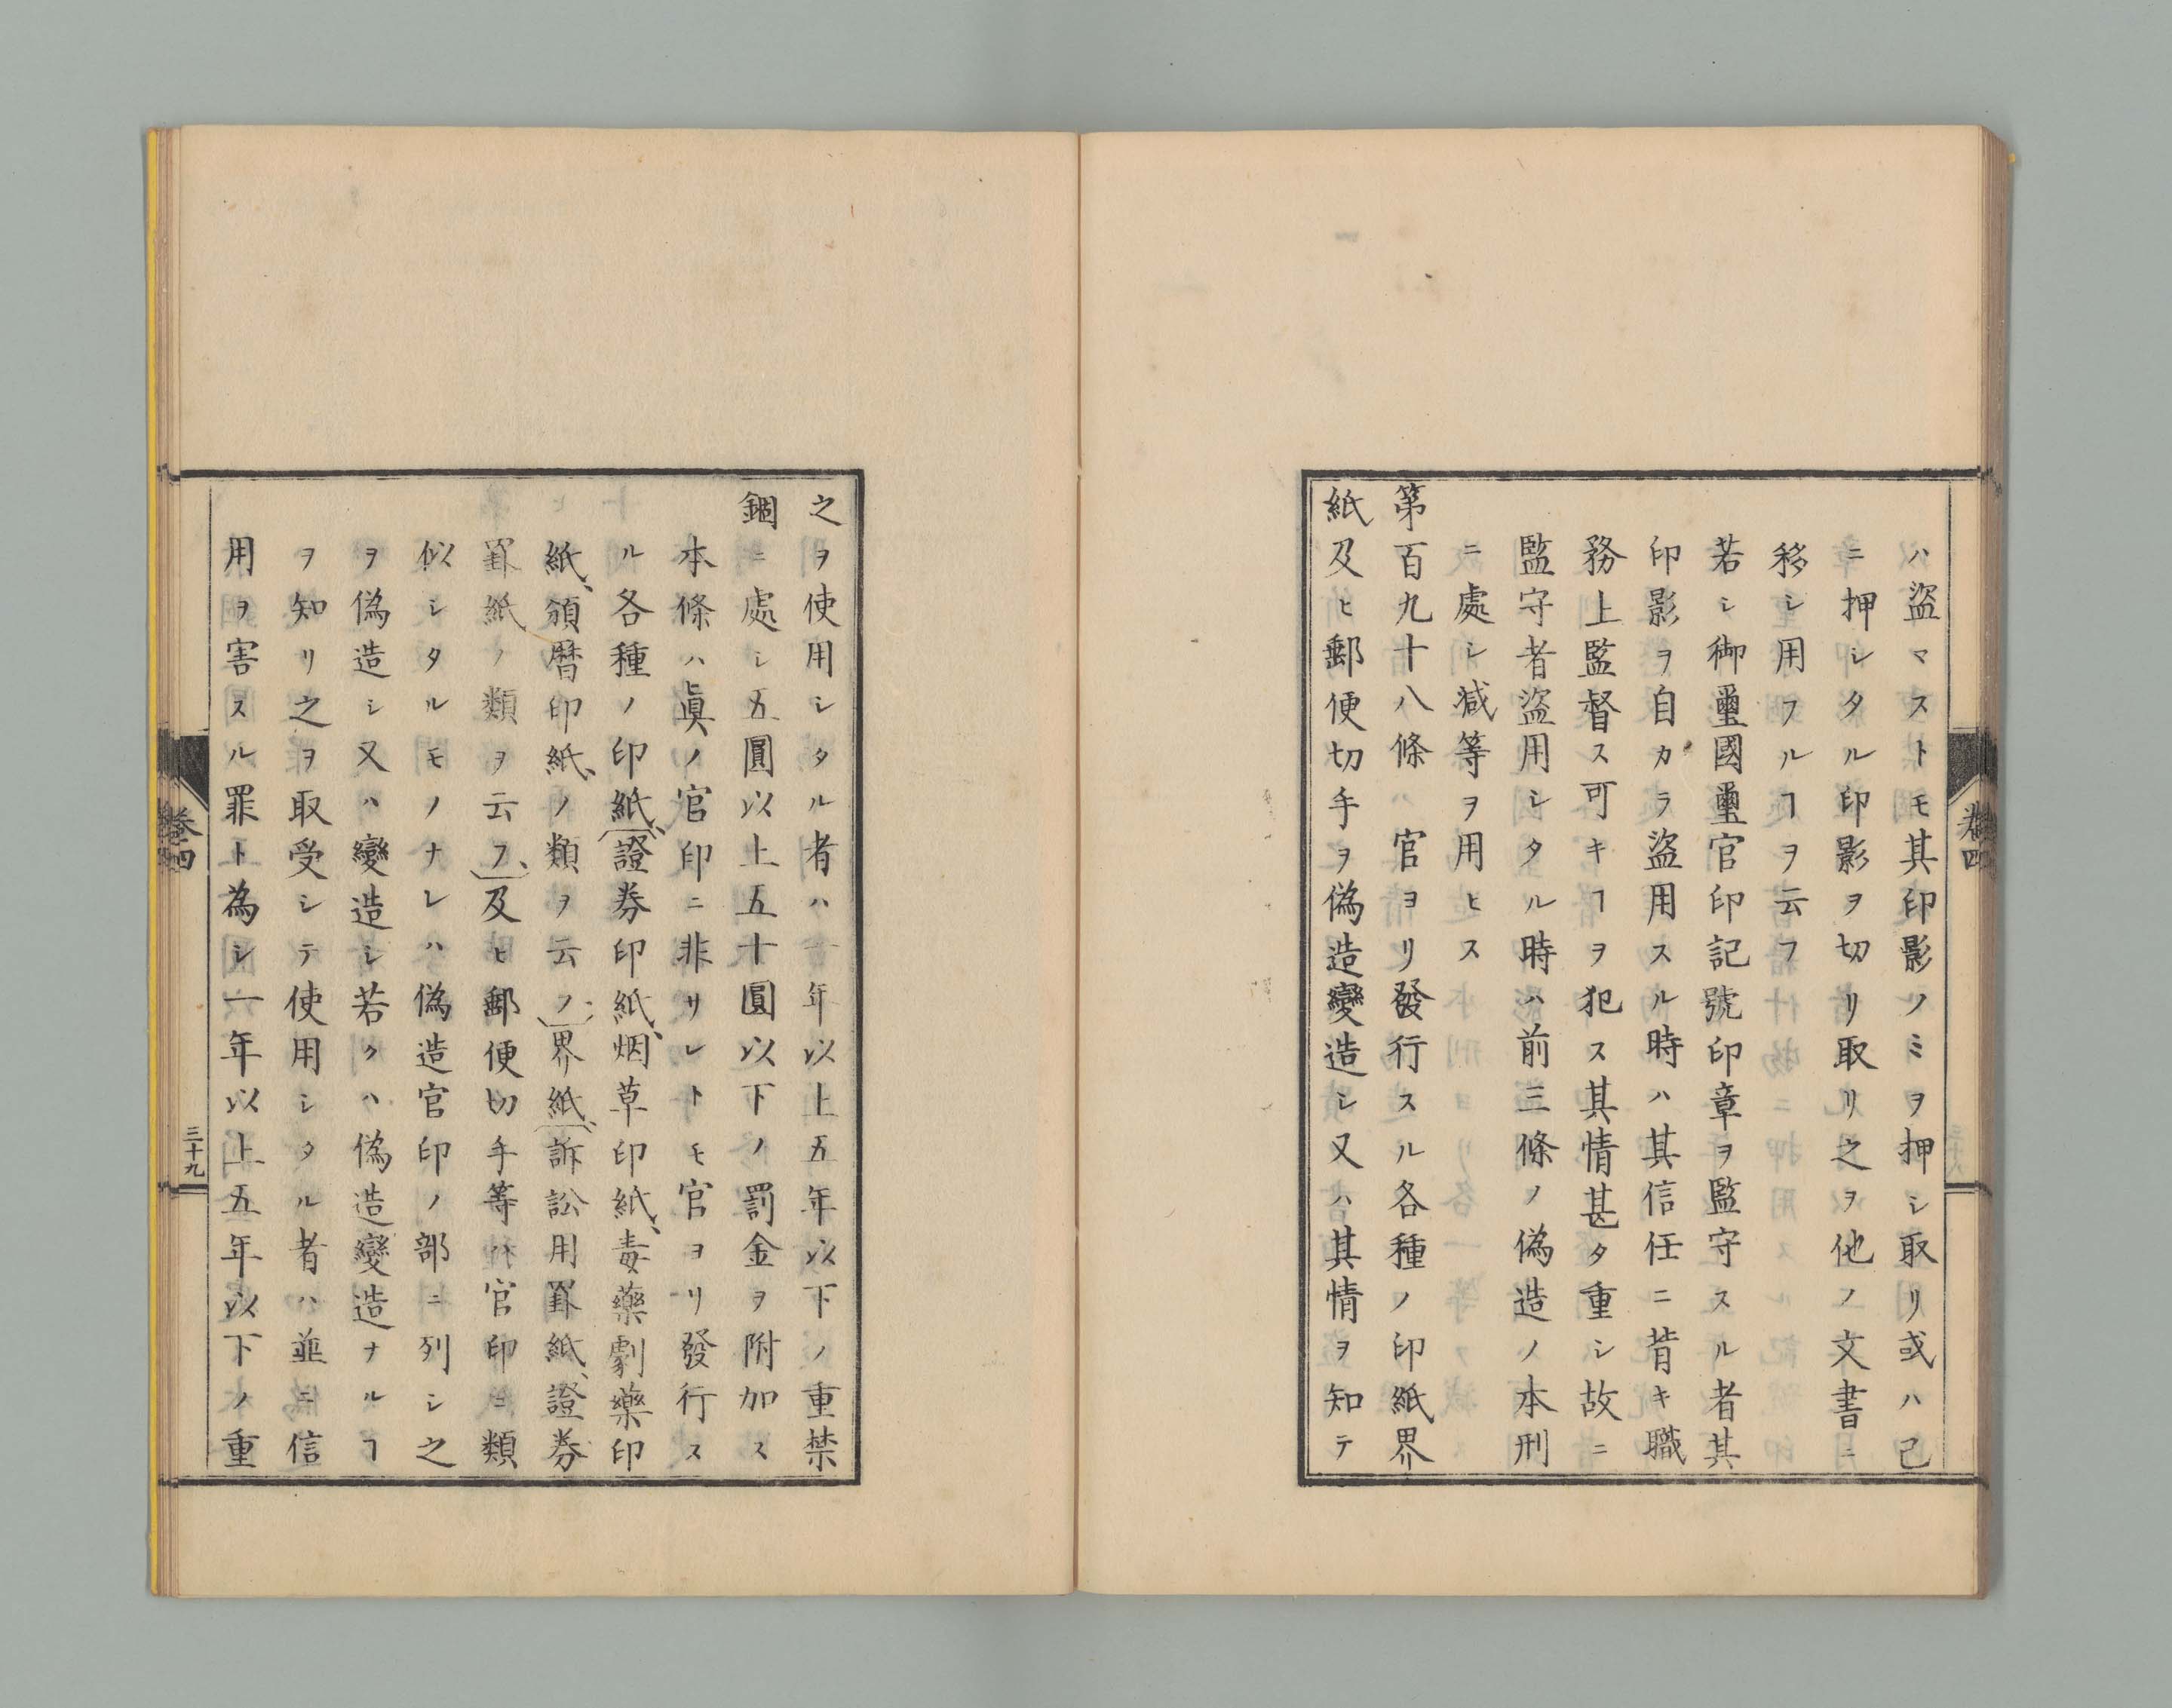 ハ盜マストモ其印影ノミヲ押シ取リ或ハ己
ニ押シタル印影ヲ切リ取リ之ヲ他ノ文書ニ
移シ用フルヿヲ云フ
若シ御璽國璽官印記號印章ヲ監守スル者其
印影ヲ自カラ盜用スル時ハ其信任ニ背キ職
務上監督ス可キヿヲ犯ス其情甚タ重シ故ニ
監守者盜用シタル時ハ前三條ノ偽造ノ本刑
ニ處シ減等ヲ用ヒス
第百九十八條 官ヨリ發行スル各種ノ印紙界
紙及ヒ郵便切手ヲ偽造變造シ又ハ其情ヲ知テ
卷四
之ヲ使用シタル者ハ一年以上五年以下ノ重禁
錮ニ處シ五圓以上五十圓以下ノ罰金ヲ附加ス
本條ハ眞ノ官印ニ非サレトモ官ヨリ發行ス
ル各種ノ印紙(證券印紙、烟草印紙、毒藥劇藥印
紙、頒曆印紙、ノ類ヲ云ノ)界紙(訴訟用罫紙、證券
罫紙ノ類ヲ云フ)及ヒ郵便切手等ハ官印ニ類
似シタルモノナレハ偽造官印ノ部ニ列シ之
ヲ偽造シ又ハ變造シ若クハ偽造變造ナルヿ
ヲ知リ之ヲ取受シテ使用シタル者ハ並ニ信
用ヲ害スル罪ト為シ一年以上五年以下ノ重
卷四
三十九